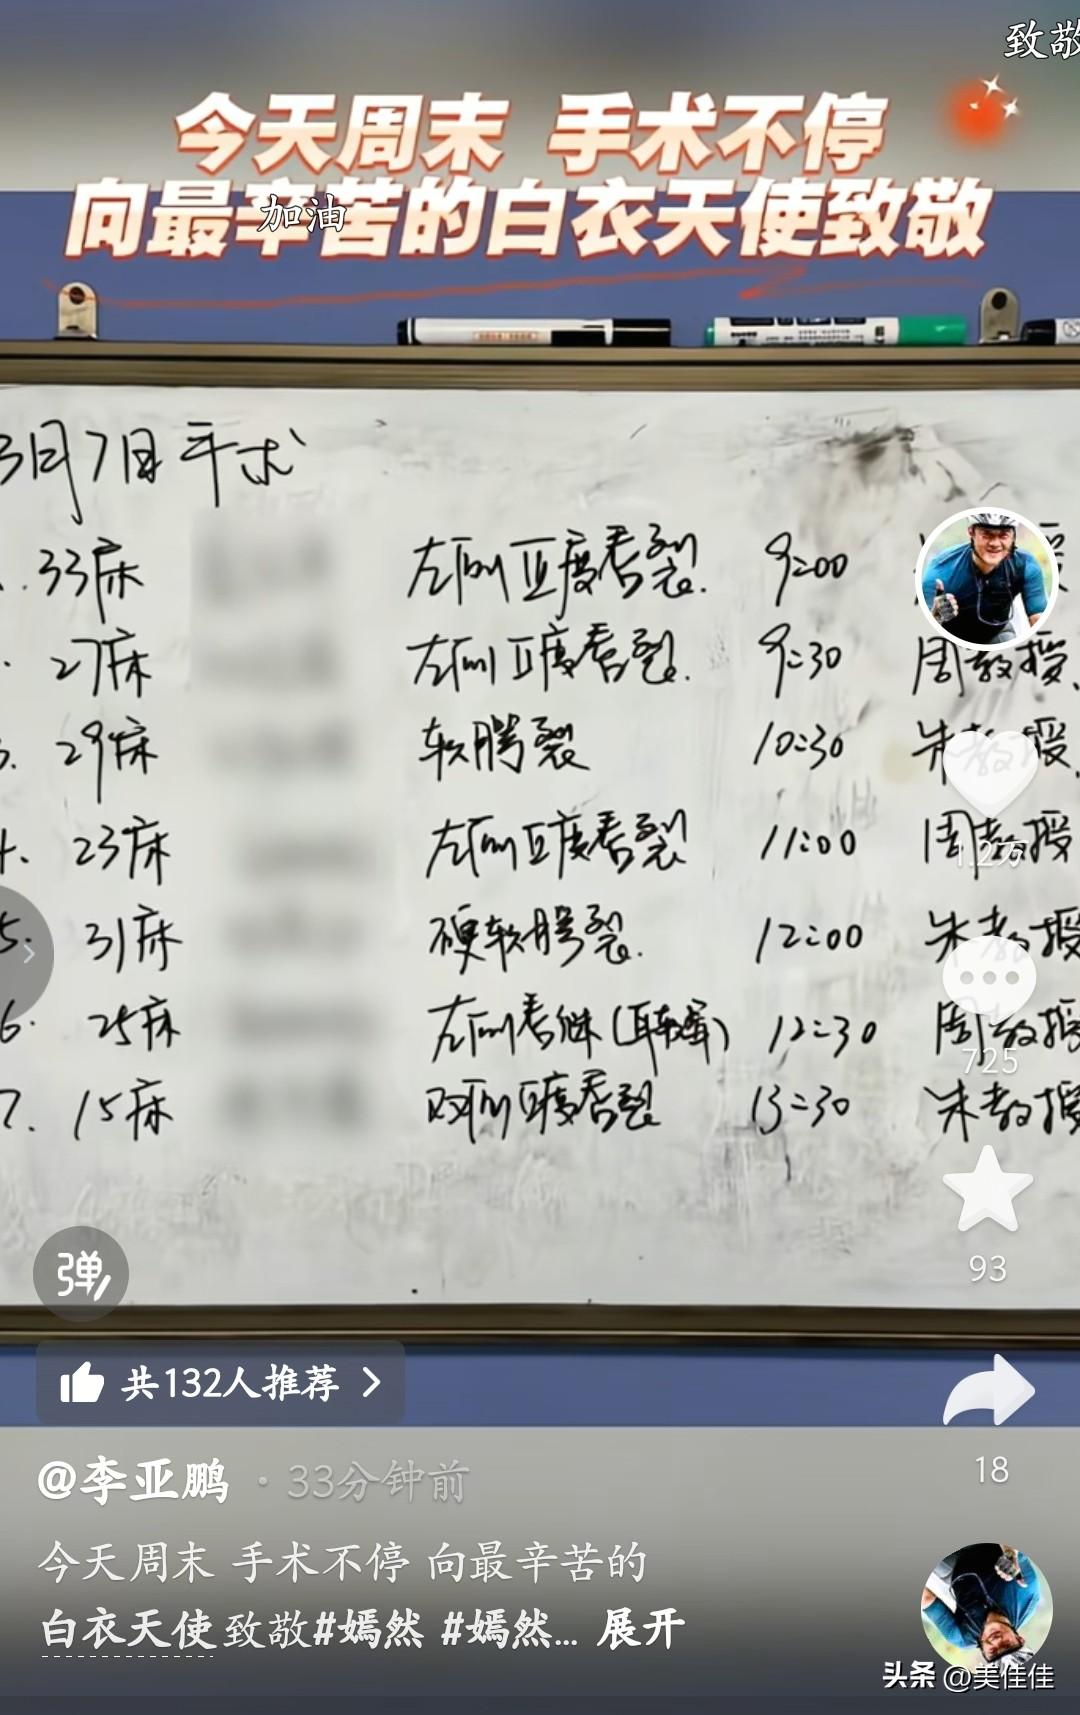 致敬
今天周末 手术不停
向最辛苦的白衣天使致敬
加油
3月7日手术
33床 左侧Ⅲ度唇裂. 9:00
27床 左侧Ⅱ度唇裂. 9:30 周教授.
3. 29床 软腭裂 10:30 朱教授.
4. 23床 左侧Ⅱ度唇裂 11:00 周教授
1.2万
5. 31床 硬软腭裂. 12:00 朱教授
6. 25床 左侧唇继(耳软骨) 12:30 周教授
725
7. 15床 双侧Ⅱ度唇裂 13:30 朱教授
弹
93
共132人推荐 >
@李亚鹏 · 33分钟前
18
今天周末 手术不停 向最辛苦的
白衣天使致敬#嫣然 #嫣然... 展开
头条 @美佳佳